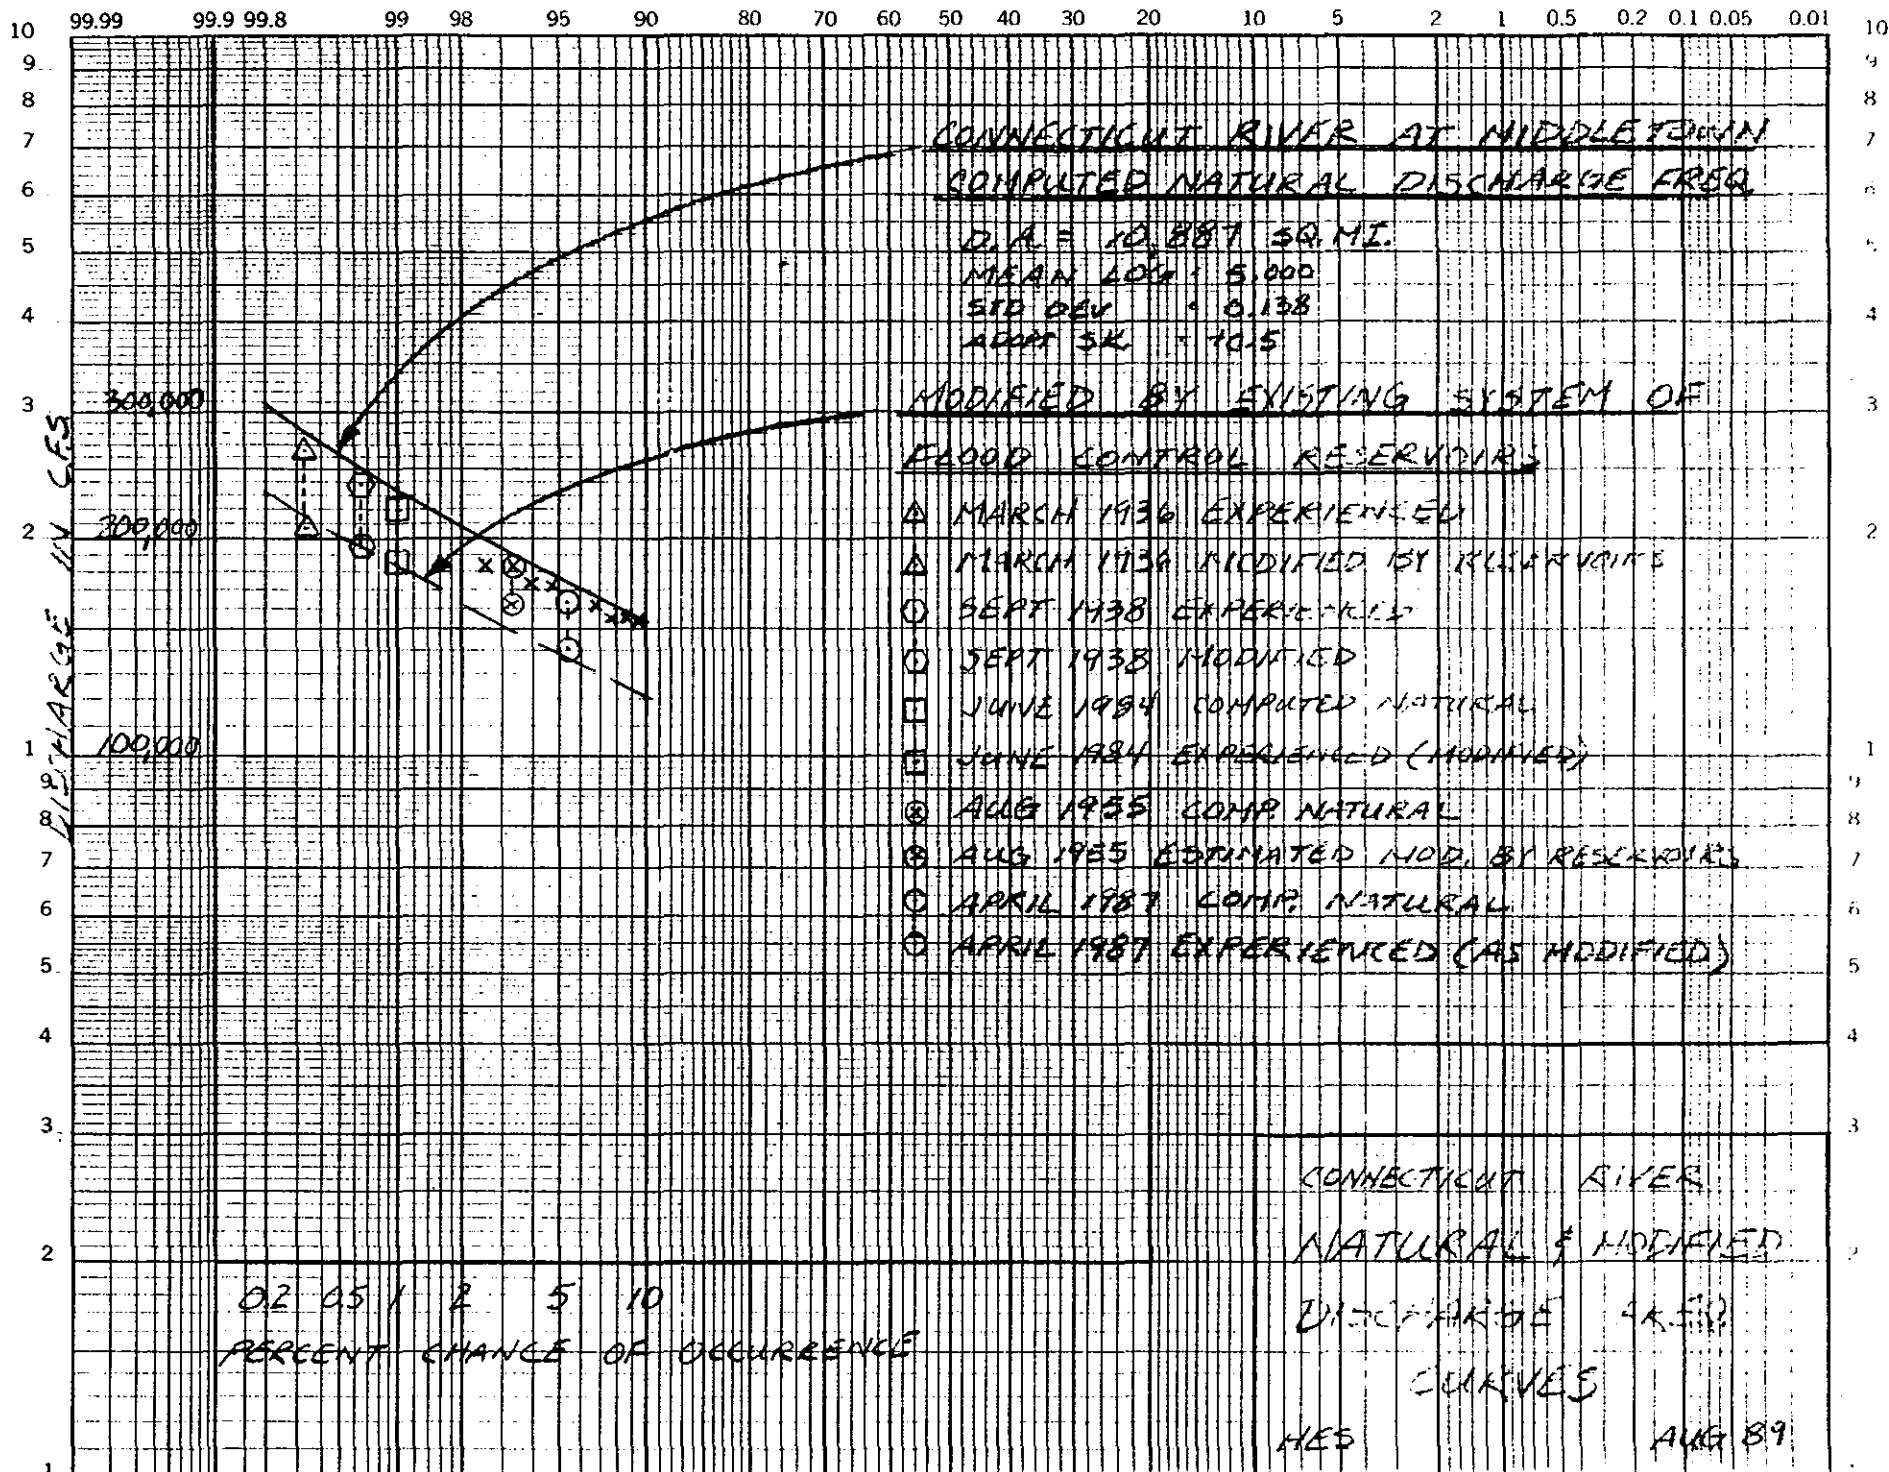 99.99 99.9 99.8 99 98 95 90 80 70 60 50 40 30 20 10 5 2 1 0.5 0.2 0.1 0.05 0.01
10
9
8
7
6
5
4
3
2
1
9
8
7
6
5
4
3
2
1
10
9
8
7
6
5
4
3
2
1
9
8
7
6
5
4
3
2
DISCHARGE IN C.F.S
300,000
200,000
100,000
CONNECTICUT RIVER AT MIDDLETOWN
COMPUTED NATURAL DISCHARGE FREQ.
D.A. = 10,887 SQ. MI.
MEAN LOG 5.000
STD DEV 0.138
ADOPT SK +0.5
MODIFIED BY EXISTING SYSTEM OF
FLOOD CONTROL RESERVOIRS
MARCH 1936 EXPERIENCED
MARCH 1936 MODIFIED BY RESERVOIRS
SEPT 1938 EXPERIENCED
SEPT 1938 MODIFIED
JUNE 1984 COMPUTED NATURAL
JUNE 1984 EXPERIENCED (MODIFIED)
AUG 1955 COMP. NATURAL
AUG 1955 ESTIMATED MOD. BY RESERVOIRS
APRIL 1987 COMP. NATURAL
APRIL 1987 EXPERIENCED (AS MODIFIED)
0.2 0.5 1 2 5 10
PERCENT CHANCE OF OCCURRENCE
CONNECTICUT RIVER
NATURAL & MODIFIED
DISCHARGE FREQ.
CURVES
HES AUG 89